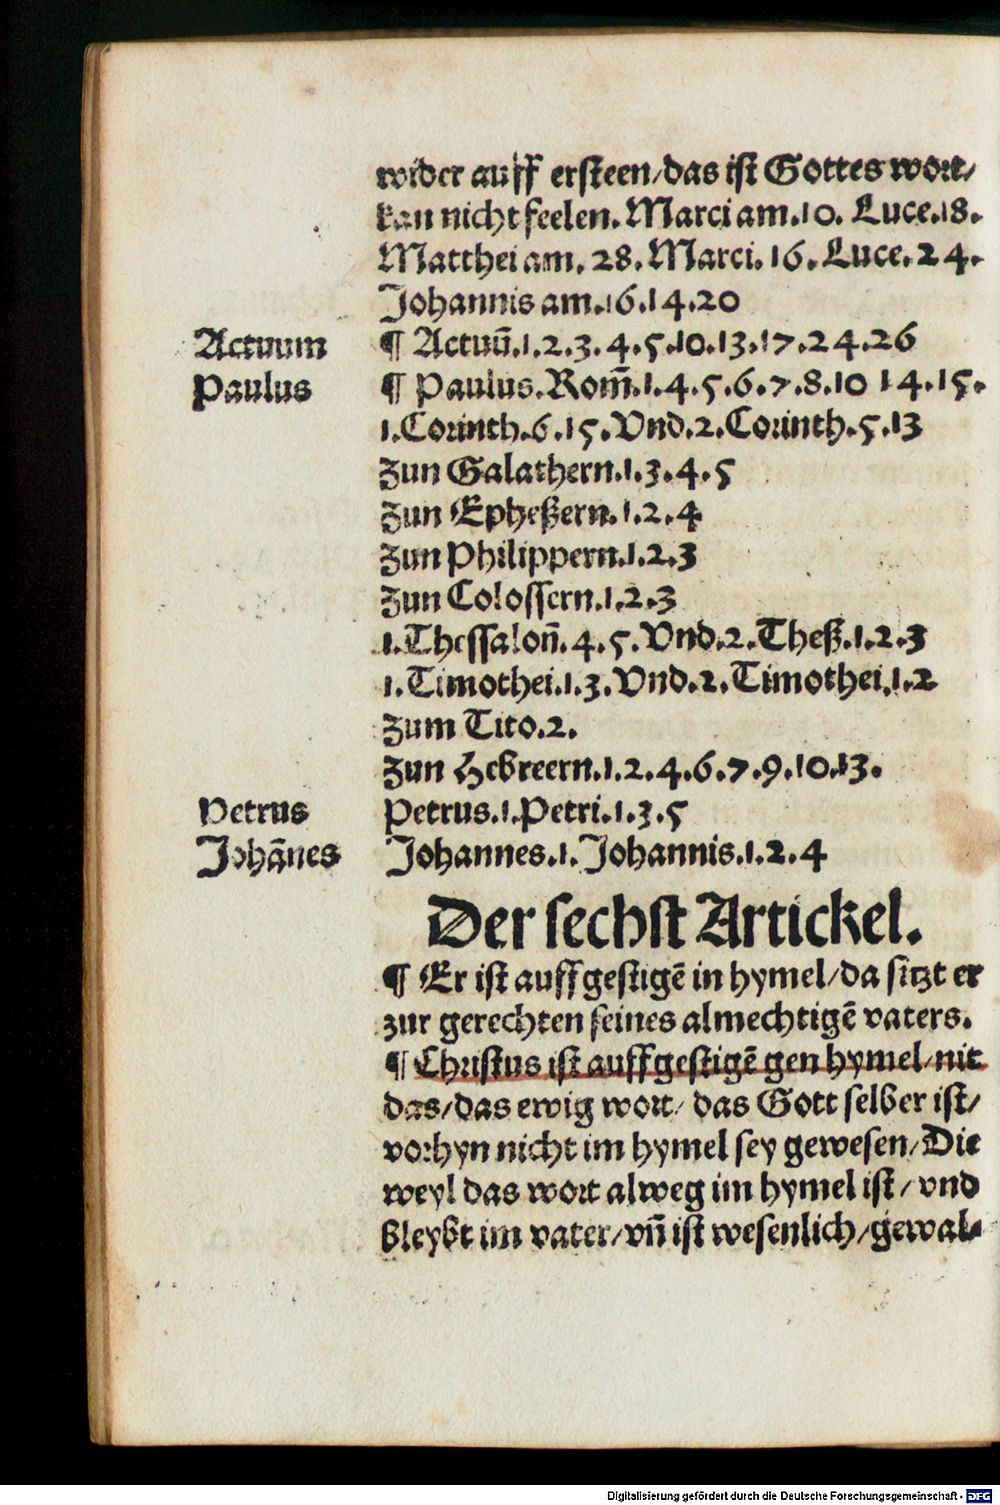 wider auff ersteen/das ist Gottes wort/
kan nicht feelen. Marci am.10. Luce.18.
Matthei am. 28. Marci. 16. Luce. 24.
Johannis am.16.14.20
Actuum
¶ Actuū.1.2.3.4.5.10.13.17.24.26
Paulus
¶ Paulus. Rom̄.1.4.5.6.7.8.10 14.15.
1.Corinth.6.15. Vnd.2.Corinth.5.13
Zun Galathern.1.3.4.5
Zun Epheßern.1.2.4
Zun Philippern.1.2.3
Zun Colossern.1.2.3
1.Thessalon̄.4.5. Vnd.2. Theß.1.2.3
1.Timothei.1.3. Vnd.2. Timothei.1.2
Zum Tito.2.
Zun Hebreern.1.2.4.6.7.9.10.13.
Petrus
Petrus.1.Petri.1.3.5
Johan̄es
Johannes.1. Johannis.1.2.4
Der sechst Artickel.
¶ Er ist auffgestigē in hymel/da sitzt er
zur gerechten seines almechtigē vaters.
¶ Christus ist auffgestigē gen hymel/nit
das/das ewig wort/ das Gott selber ist/
vorhyn nicht im hymel sey gewesen/Die
weyl das wort alweg im hymel ist/ vnd
bleybt im vater/vn̄ ist wesenlich/gewal⸗
Digitalisierung gefördert durch die Deutsche Forschungsgemeinschaft - DFG